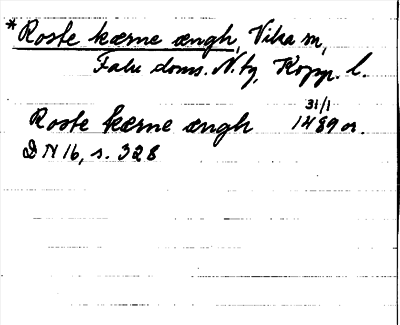 *Roste kærne ængh, Vika sn,
Falu doms. N. tg, Kopp. l.
Roste kærne ængh 31/1 1489 or.
DN 16, s. 328